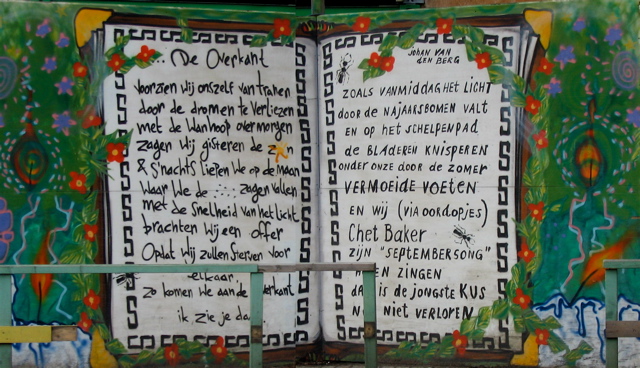 De Overkant
voorzien wij onszelf van tranen
door de dromen te verliezen
met de wanhoop overmorgen
zagen wij gisteren de
& s'nachts liepen we op de maan
waar we de ..... zagen vallen
met de snelheid van het licht
brachten wij een offer
Opdat wij zullen sterven voor
elkaar
zo komen we aan de
ik zie je
JOHAN VAN
DEN BERG
ZOALS VANMIDDAG HET LICHT
DOOR DE NAJAARSBOMEN VALT
EN OP HET SCHELPENPAD
DE BLADEREN KNISPEREN
ONDER ONZE DOOR DE ZOMER
VERMOEIDE VOETEN
EN WIJ (VIA OORDOPJES)
Chet Baker
ZIJN "SEPTEMBERSONG"
ZINGEN
IS DE JONGSTE KUS
Niet VERLOREN